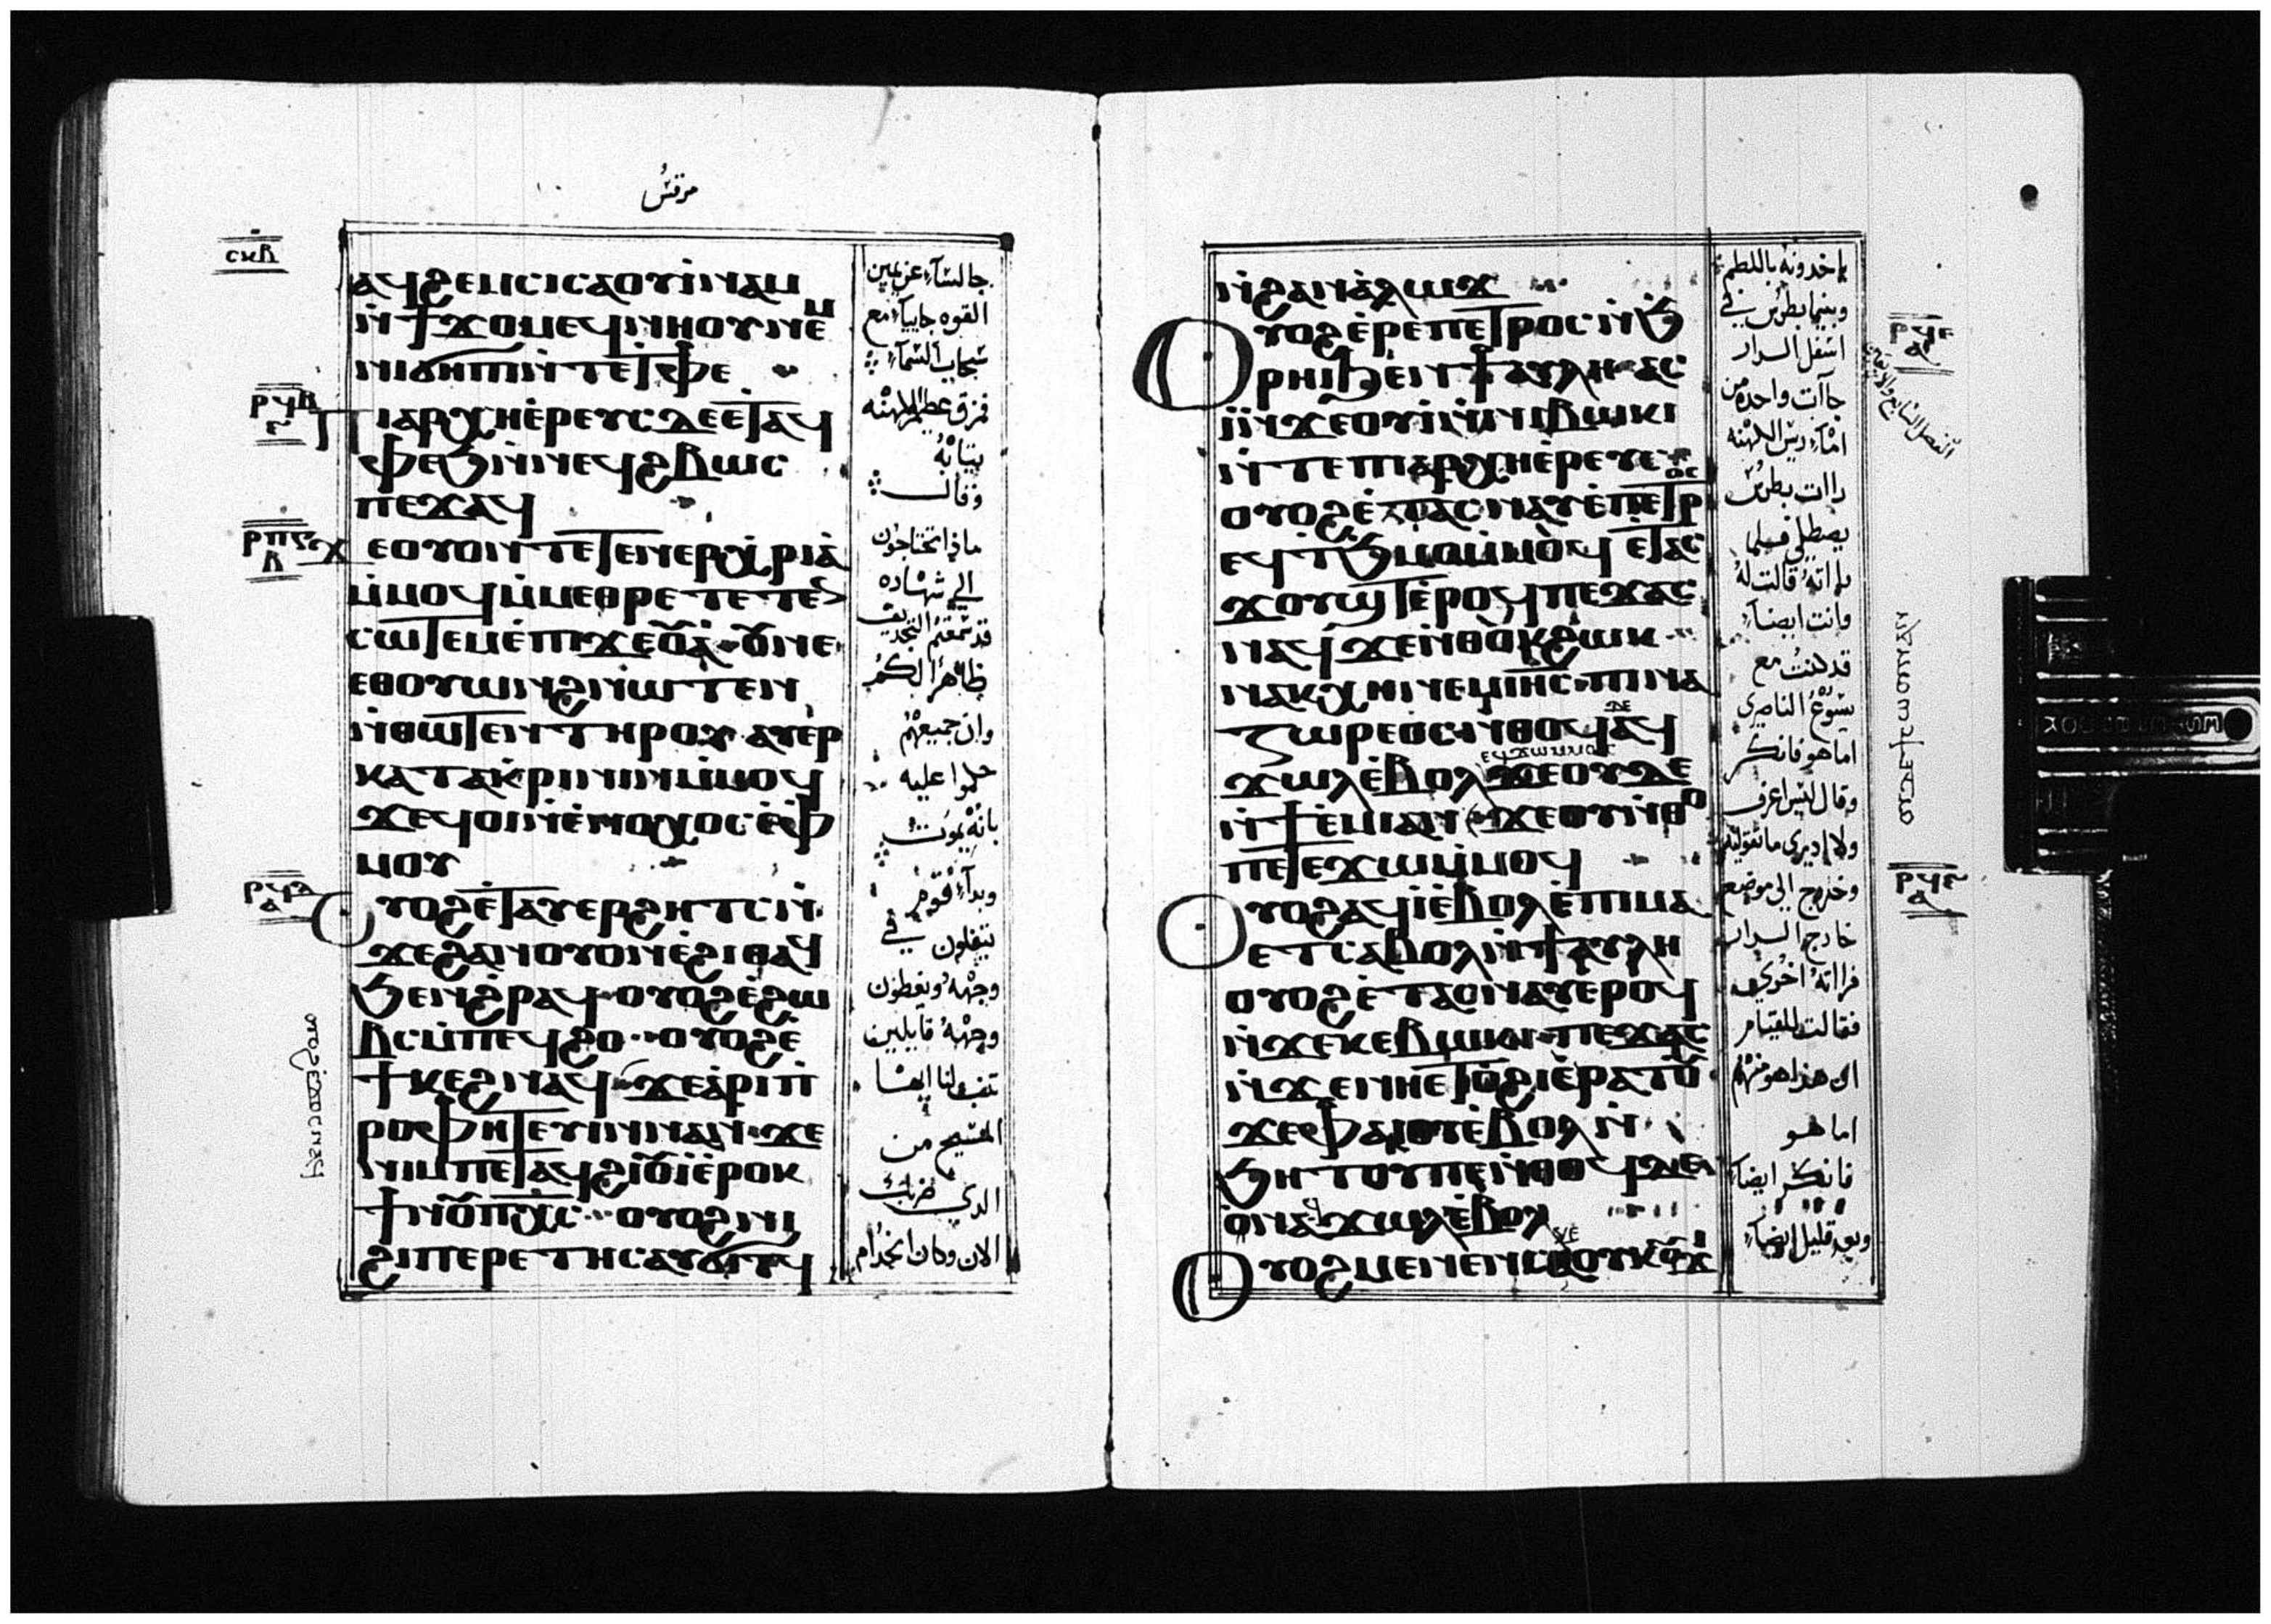 مرقس
ⲥⲕⲃ
ⲁϥϩⲉⲙⲥⲓⲥⲁⲟⲩⲓ̀ⲛⲁⲙ
ⲛ̀ϯϫⲟⲙⲉϥⲛⲏⲟⲩⲛⲉⲙ
ⲛⲓϭⲏⲡⲓⲛ̀ⲧⲉⲧⲫⲉ
ⲡⲓⲁⲣⲭⲏⲉ̀ⲣⲉⲩⲥⲇⲉⲉⲧⲁϥ
ⲫⲉϧⲛ̀ⲛⲉϥϩⲃⲱⲥ
ⲡⲉϫⲁϥ
ϫⲉⲟⲩⲟⲛⲧⲉⲧⲉⲛⲉⲣⲭⲣⲓⲁ̀
ⲙ̀ⲙⲟϥⲙ̀ⲙⲉⲑⲣⲉⲧⲉⲧⲉ
ⲥⲱⲧⲉⲙⲉ̀ⲡⲓϫⲉⲟⲩⲁ̀ⲟⲩⲛⲉ
ⲉⲑⲟⲩⲱⲛϩⲛ̀ⲱⲧⲉⲛ
ⲛ̀ⲑⲱⲧⲉⲛⲧⲏⲣⲟⲩⲁⲩⲉⲣ
ⲕⲁⲧⲁⲕⲣⲓⲛⲓⲛⲙ̀ⲙⲟϥ
ϫⲉϥⲟⲓⲛ̀ⲉⲛⲟⲭⲟⲥⲉ̀ⲫ
ⲙⲟⲩ
ⲟⲩⲟϩⲉ̀ⲧⲁⲩⲉⲣϩⲏⲧⲥⲛ̀
ϫⲉϩⲁⲛⲟⲩⲟⲛⲉ̀ϩⲓⲑⲁϥ
ϧⲉⲛϩⲣⲁϥⲟⲩⲟϩⲉ̀ϩⲱ
ⲃⲥⲙ̀ⲡⲉϥϩⲟⲟⲩⲟϩⲉ̀
ϯⲕⲉϩⲛⲁϥϫⲉⲁ̀ⲣⲓⲡ̀
ⲣⲟⲫⲏⲧⲉⲩⲓⲛⲛⲁⲛϫⲉ
ⲛⲓⲙⲡⲉⲧⲁϥϩⲓⲟⲩⲓ̀ⲉ̀ⲣⲟⲕ
ϯⲛⲟⲩⲡⲭⲥⲟⲩⲟϩⲛⲓ
ϩⲓⲡⲉⲣⲉⲧⲏⲥⲁⲩϭⲓⲧϥ
جالسًا عن يمين
القوه جاييا مع
سحاب السما
فمزق عظيم الكهنه
ثيابه
وقال
ماذا تحتاجون
الي شهاده
قد سمعتم التجديف
ظاهرًا لكم
وان جميعهم
حكموا عليه
بانه يموت
وبدا قوم
يتفلون في
وجهه ويغطون
وجهه قايلين
تنبا لنا ايها
المسيح من
الذي ضربك
الان وكان الخدام
ⲛ̀ϩⲁⲛⲁⲗⲱϫ
ⲟⲩⲟϩⲉ̀ⲣⲉⲡⲉⲧⲣⲟⲥⲛ̀ϧ
ⲣⲏⲓϧⲉⲛϯⲁⲩⲗⲏⲁⲥ
ⲓ̀ⲛ̀ϫⲉⲟⲩⲓ̀ⲛ̀ⲛⲓⲃⲱⲕⲓ
ⲛ̀ⲧⲉⲡⲓⲁⲣⲭⲏⲉ̀ⲣⲉⲩⲥ
ⲟⲩⲟϩⲉ̀ⲧⲁⲥⲛⲁⲩⲉ̀ⲡⲉⲧⲣⲟⲥ
ⲉϥϯϧⲙⲟⲙⲙ̀ⲙⲟϥⲉ̀ⲧⲁⲥ
ϫⲟⲩϣⲧⲉ̀ⲣⲟϥⲡⲉϫⲁⲥ
ⲛⲁϥϫⲉⲛ̀ⲑⲟⲕϩⲱⲕ
ⲛⲁⲕⲭⲏⲛⲉⲙⲓⲏⲥⲡⲓⲛⲁ
ⲍⲱⲣⲉⲟⲥⲛ̀ⲑⲟϥⲇⲉⲁϥ
ϫⲱⲗⲉ̀ⲃⲟⲗⲉϥϫⲱⲙⲙⲟⲥϫⲉⲟⲩⲇⲉ
ⲛ̀ϯⲉ̀ⲙⲓⲁⲛϫⲉⲟⲩⲛ̀ⲑⲟ
ⲡⲉⲧⲉϫⲱⲙ̀ⲙⲟϥ
ⲟⲩⲟϩⲁϥⲓ̀ⲉ̀ⲃⲟⲗⲉ̀ⲡⲓⲙⲁ
ⲉⲧⲥⲁⲃⲟⲗⲛ̀ϯⲁⲩⲗⲏ
ⲟⲩⲟϩⲉ̀ⲧⲁⲥⲛⲁⲩⲉⲣⲟϥ
ⲛ̀ϫⲉⲕⲉⲃⲱⲕⲓⲡⲉϫⲁⲥ
ⲛ̀ϫⲉⲛⲏⲉⲧⲟ̀ϩⲓⲉ̀ⲣⲁⲧⲟⲩ
ϫⲉⲫⲁⲓⲟⲩⲉ̀ⲃⲟⲗⲛ̀
ϧⲏⲧⲟⲩⲡⲉⲛ̀ⲑⲟϥⲇⲉ
ⲟⲛⲁϥϫⲱⲗⲉ̀ⲃⲟⲗ
ⲟⲩⲟϩⲙⲉⲛⲉⲛⲥⲁⲕⲉⲕⲟⲩϫⲓ
ياخذونه باللطم
وبينما بطرس في
اسفل الدار
جاءت واحده من
اماء ريس الكهنه
رات بطرس
يصطلي فلما
راته قالت له
وانت ايضا
قد كنت مع
يسوع الناصري
اما هو فانكر
وقال ليس اعرف
ولا ادري ما تقوليه
وخرج الي موضع
خارج الدار
فراته اخري
فقالت للقيام
ان هذا هو منهم
اما هو
فانكر ايضا
وبعد قليل ايضا